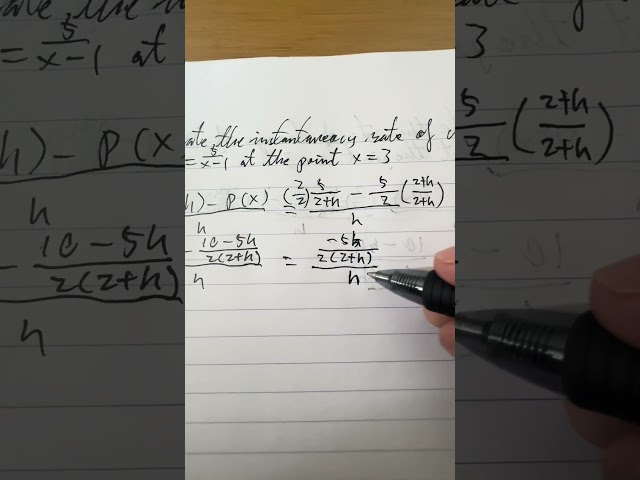 ate the instantaneous rate of c
= 5/(x-1) at the point x = 3
h) - P(x) / h = (2/2) 5/(2+h) - 5/2 ((2+h)/(2+h)) / h
- 10 - 5h / 2(2+h) / h = -5h / 2(2+h) / h